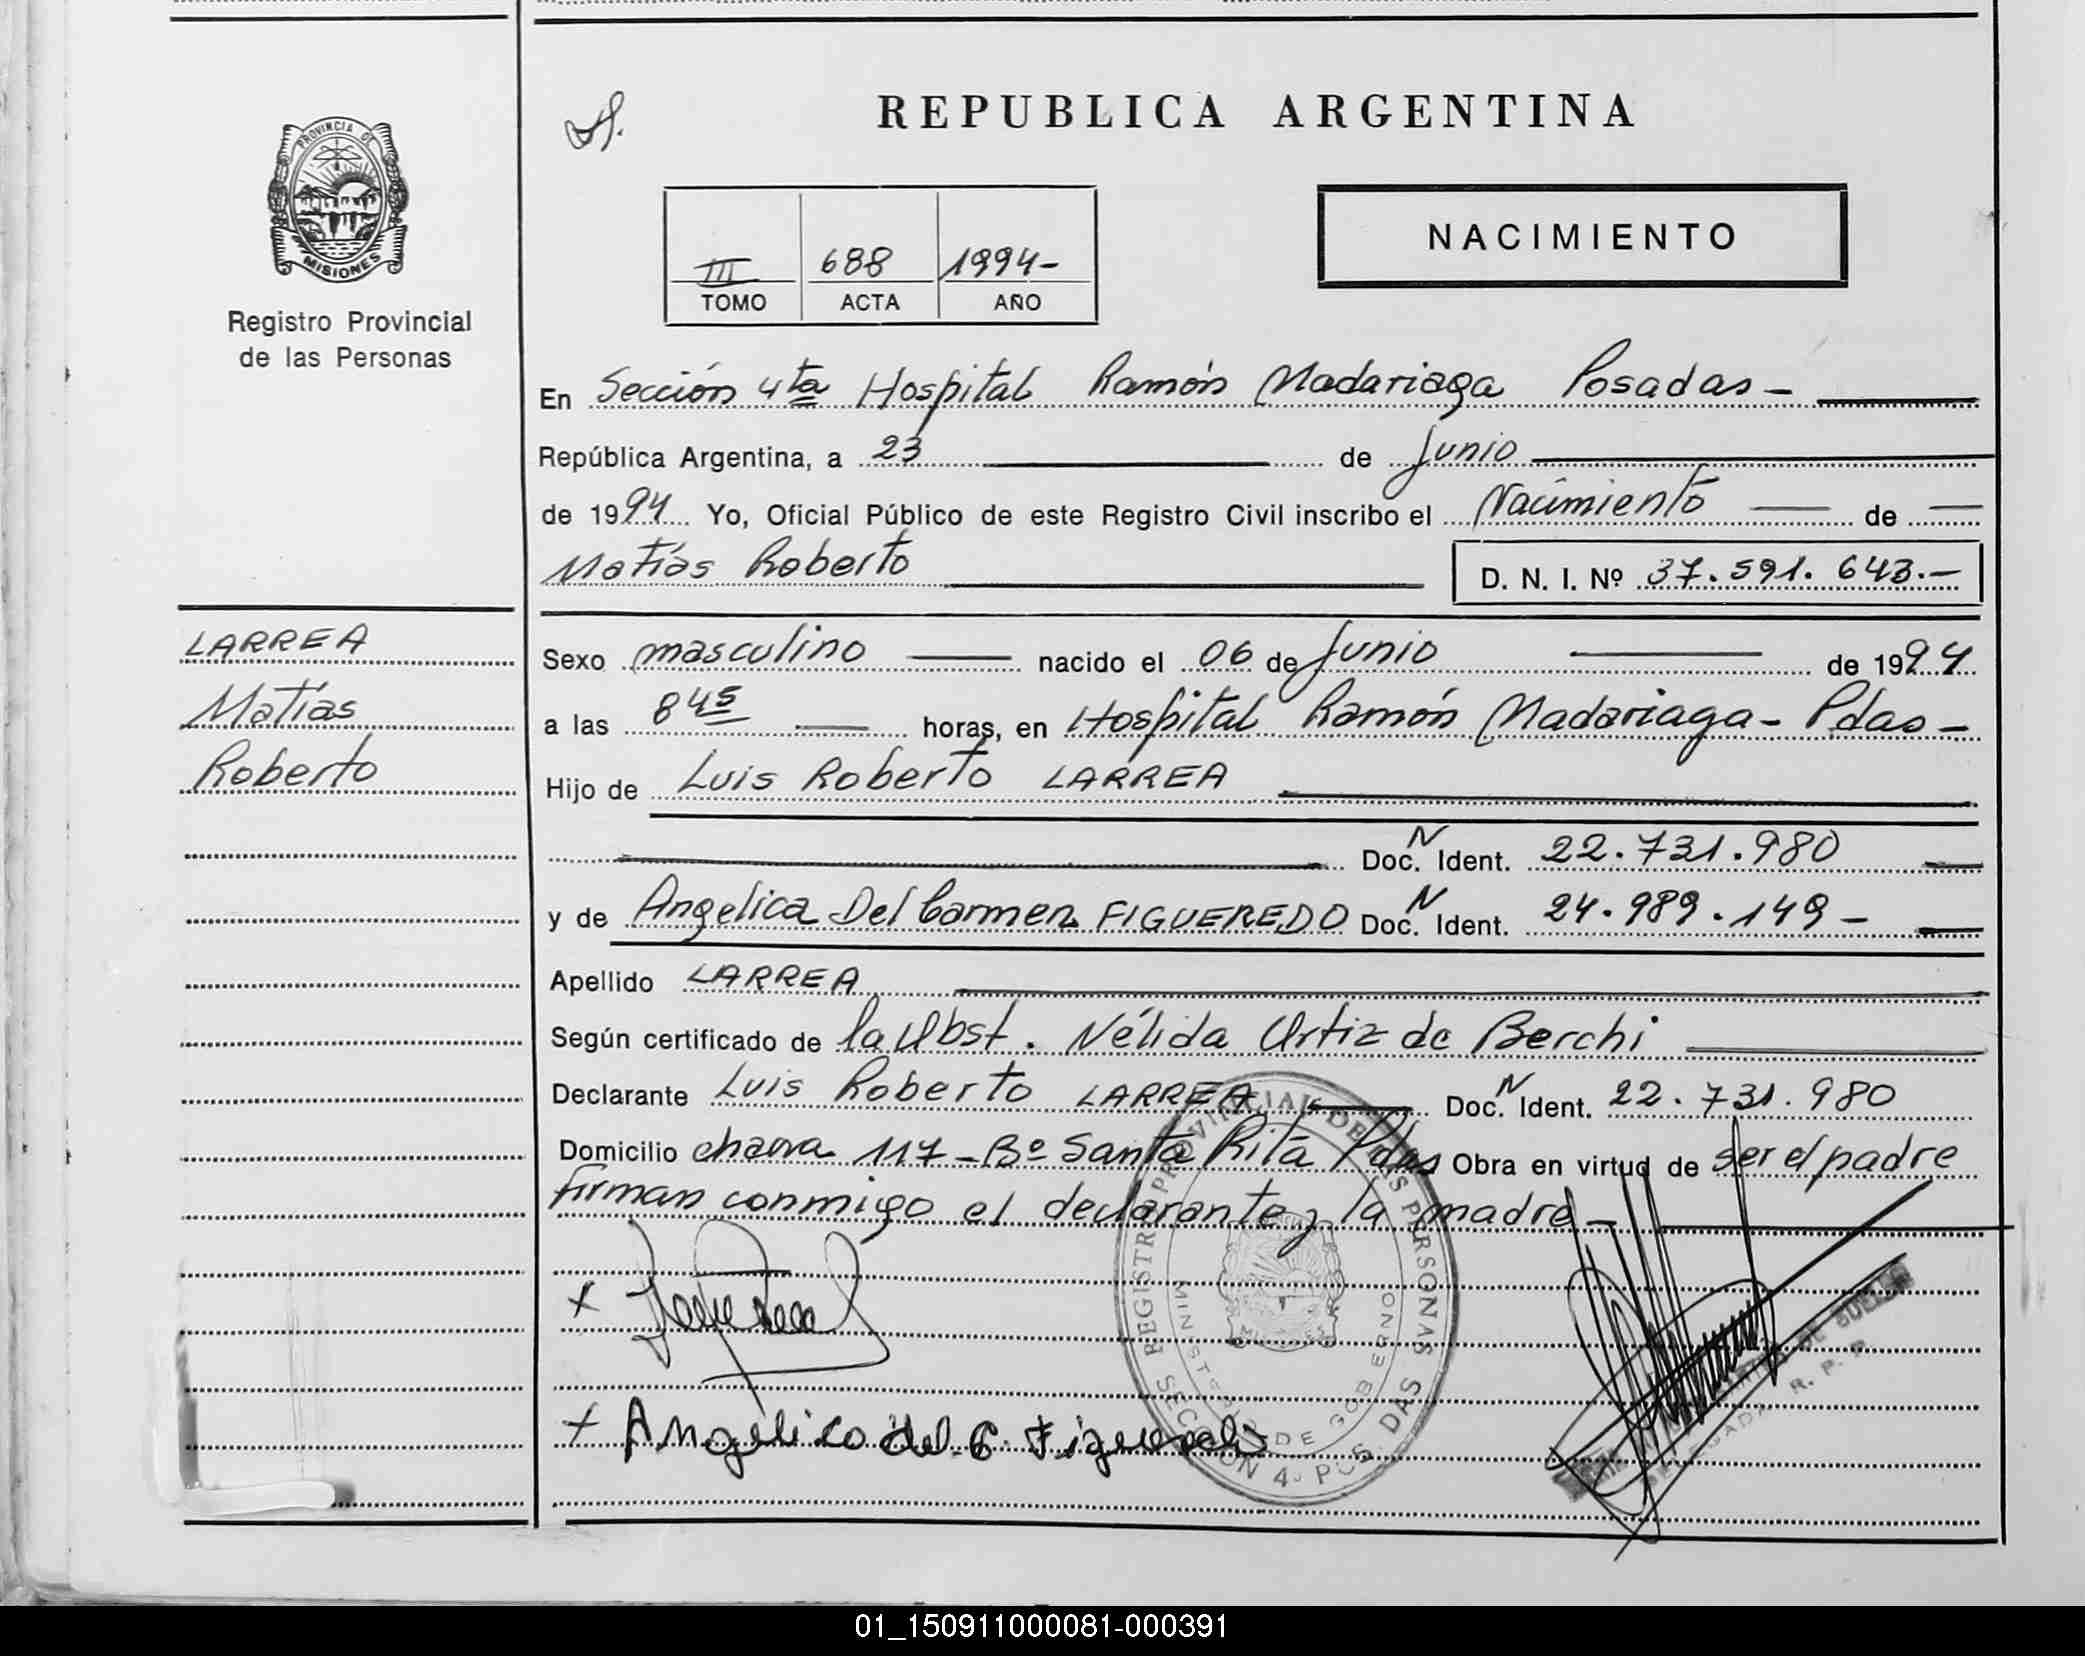 REPUBLICA ARGENTINA
PROVINCIA DE
MISIONES
Registro Provincial
de las Personas
NACIMIENTO
III 688 1994-
TOMO ACTA AÑO
En Sección 4ta Hospital Ramón Madariaga Posadas-
República Argentina, a 23 de Junio
de 1994 Yo, Oficial Público de este Registro Civil inscribo el Nacimiento de
Matías Roberto D. N. I. Nº 37.591.643.-
LARREA
Matías
Roberto
Sexo masculino nacido el 06 de Junio de 1994
a las 8 45 horas, en Hospital Ramón Madariaga- Pdas-
Hijo de Luis Roberto LARREA
Doc. N Ident. 22.731.980
y de Angelica Del Carmen FIGUEREDO Doc. N Ident. 24.989.149-
Apellido LARREA
Según certificado de la Obst. Nélida Ortiz de Berchi
Declarante Luis Roberto LARREA Doc. N Ident. 22.731.980
Domicilio chacra 117-Bº Santa Rita Pdas Obra en virtud de ser el padre
firman conmigo el declarante y la madre-
REGISTRO PROVINCIAL DE LAS PERSONAS
MINISTERIO DE GOBIERNO
MISIONES
SECCION 4
+ Angélica del C. Figueredo
R. P. P.
01_150911000081-000391